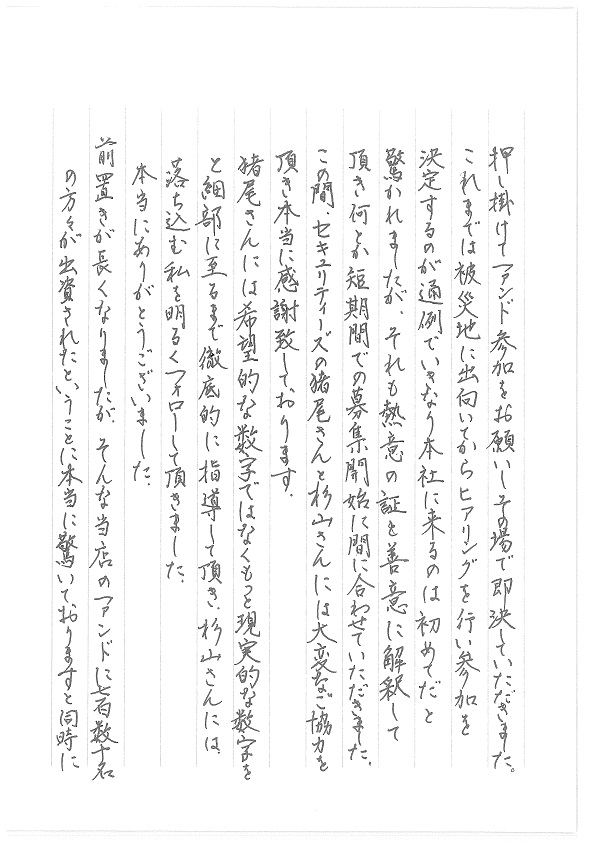 押し掛けてファンド参加をお願いしその場で即決していただきました。
これまでは被災地に出向いてからヒアリングを行い参加を
決定するのが通例でいきなり本社に来るのは初めてだと
驚かれましたが、それも熱意の証と善意に解釈して
頂き何とか短期間での募集開始に間に合わせていただきました。
この間、セキュリティーズの猪尾さんと杉山さんには大変なご協力を
頂き本当に感謝致しております。
猪尾さんには希望的な数字ではなくもっと現実的な数字を
と細部に至るまで徹底的に指導して頂き、杉山さんには、
落ち込む私を明るくフォローして頂きました。
本当にありがとうございました。
前置きが長くなりましたが、そんな当店のファンドに七百数十名
の方々が出資されたということに本当に驚いておりますと同時に